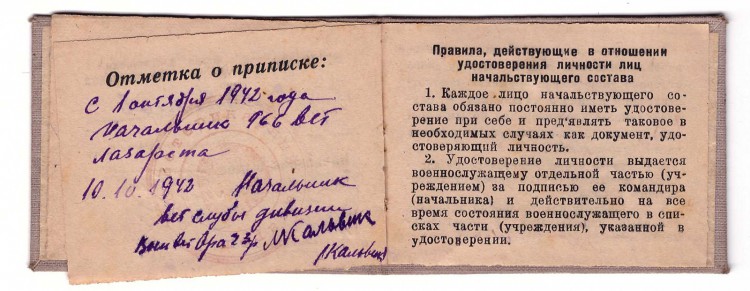 Отметка о приписке:
С 1 октября 1942 года
Начальник 966 вет
лазарета
10.10.1942 Начальник
вет службы дивизии
Военветврач 2 р
Правила, действующие в отношении
удостоверения личности лиц
начальствующего состава
1. Каждое лицо начальствующего со-
става обязано постоянно иметь удостове-
рение при себе и предъявлять таковое в
необходимых случаях как документ, удо-
стоверяющий личность.
2. Удостоверение личности выдается
военнослужащему отдельной частью (уч-
реждением) за подписью ее командира
(начальника) и действительно на все
время состояния военнослужащего в спи-
сках части (учреждения), указанной в
удостоверении.